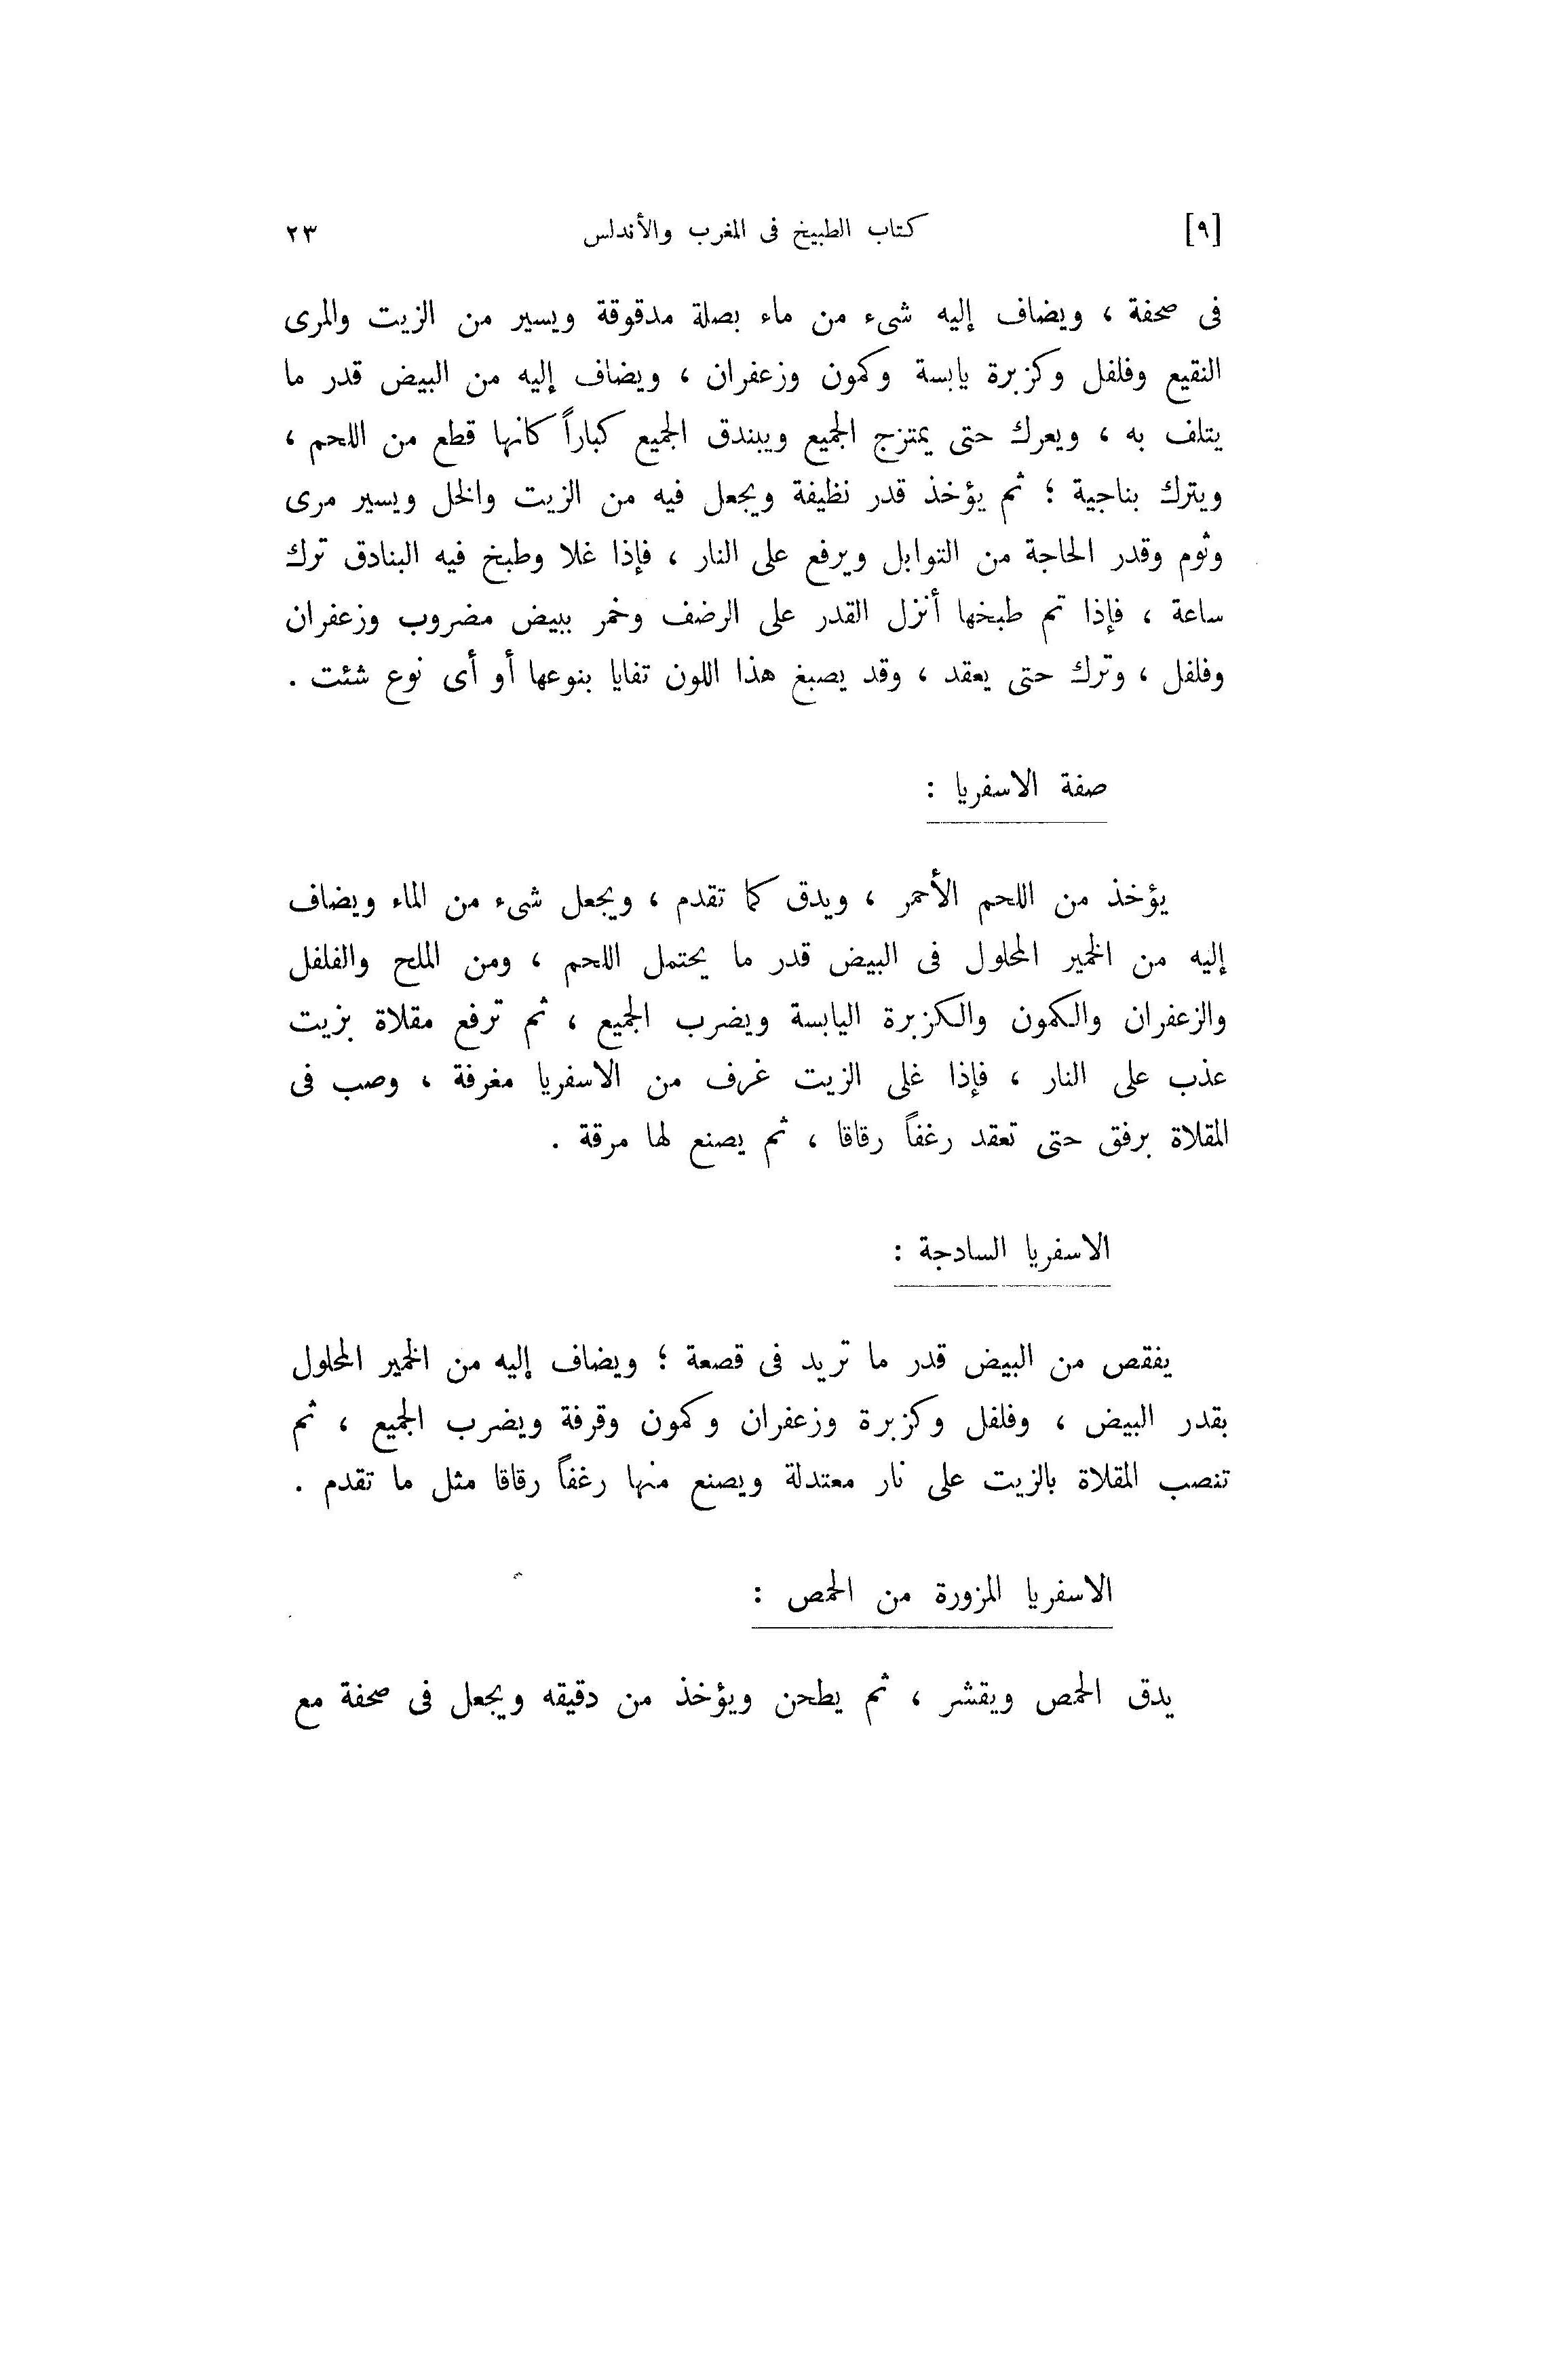 [٩]
كتاب الطبيخ فى المغرب والأندلس
٢٣
فى صحفة ، ويضاف إليه شىء من ماء بصلة مدقوقة ويسير من الزيت والمرى
النقيع وفلفل وكزبرة يابسة وكمون وزعفران ، ويضاف إليه من البيض قدر ما
يتلف به ، ويعرك حتى يمتزج الجميع ويبندق الجميع كباراً كانها قطع من اللحم ،
ويترك بناحية ؛ ثم يؤخذ قدر نظيفة ويجعل فيه من الزيت والخل ويسير مرى
وثوم وقدر الحاجة من التوابل ويرفع على النار ، فإذا غلا وطبخ فيه البنادق ترك
ساعة ، فإذا تم طبخها أنزل القدر على الرضف وخمر ببيض مضروب وزعفران
وفلفل ، وترك حتى يعقد ، وقد يصبغ هذا اللون تفايا بنوعها أو أى نوع شئت .
صفة الاسفريا :
يؤخذ من اللحم الأحمر ، ويدق كما تقدم ، ويجعل شىء من الماء ويضاف
إليه من الخمير المحلول فى البيض قدر ما يحتمل اللحم ، ومن الملح والفلفل
والزعفران والكمون والكزبرة اليابسة ويضرب الجميع ، ثم ترفع مقلاة بزيت
عذب على النار ، فإذا غلى الزيت غرف من الاسفريا مغرفة ، وصب فى
المقلاة برفق حتى تعقد رغفاً رقاقا ، ثم يصنع لها مرقة .
الاسفريا السادجة :
يفقص من البيض قدر ما تريد فى قصعة ؛ ويضاف إليه من الخمير المحلول
بقدر البيض ، وفلفل وكزبرة وزعفران وكمون وقرفة ويضرب الجميع ، ثم
تنصب المقلاة بالزيت على نار معتدلة ويصنع منها رغفاً رقاقا مثل ما تقدم .
الاسفريا المزورة من الحمص :
يدق الحمص ويقشر ، ثم يطحن ويؤخذ من دقيقه ويجعل فى صحفة مع